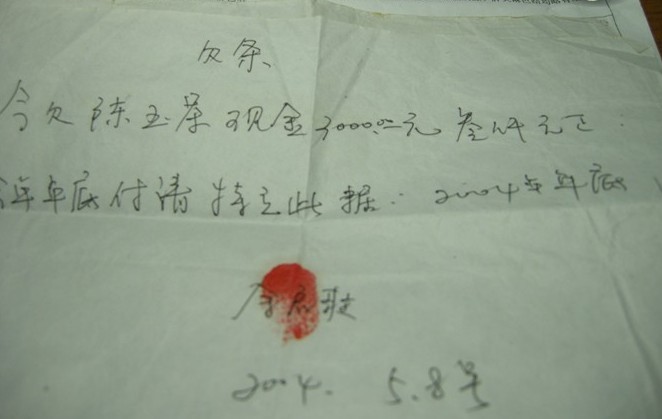 欠条
今欠陈玉荣现金3000.00元叁仟元正:
年年底付清特立此据: 2004年年底
2004. 5.8号